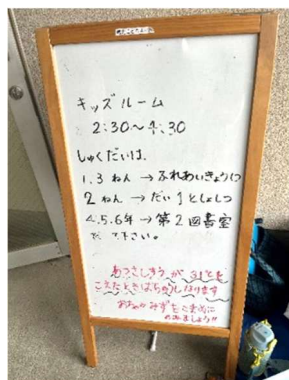 キッズルーム
2:30〜4:30
しゅくだいは、
1.3ねん→ふれあいきょうしつ
2ねん→だい1としょしつ
4.5.6年→第2図書室
で 下さい。
あつさしすうが31どを
こえたときはちゅうしになります
おちゃかみずをこまめに
のみましょう!!